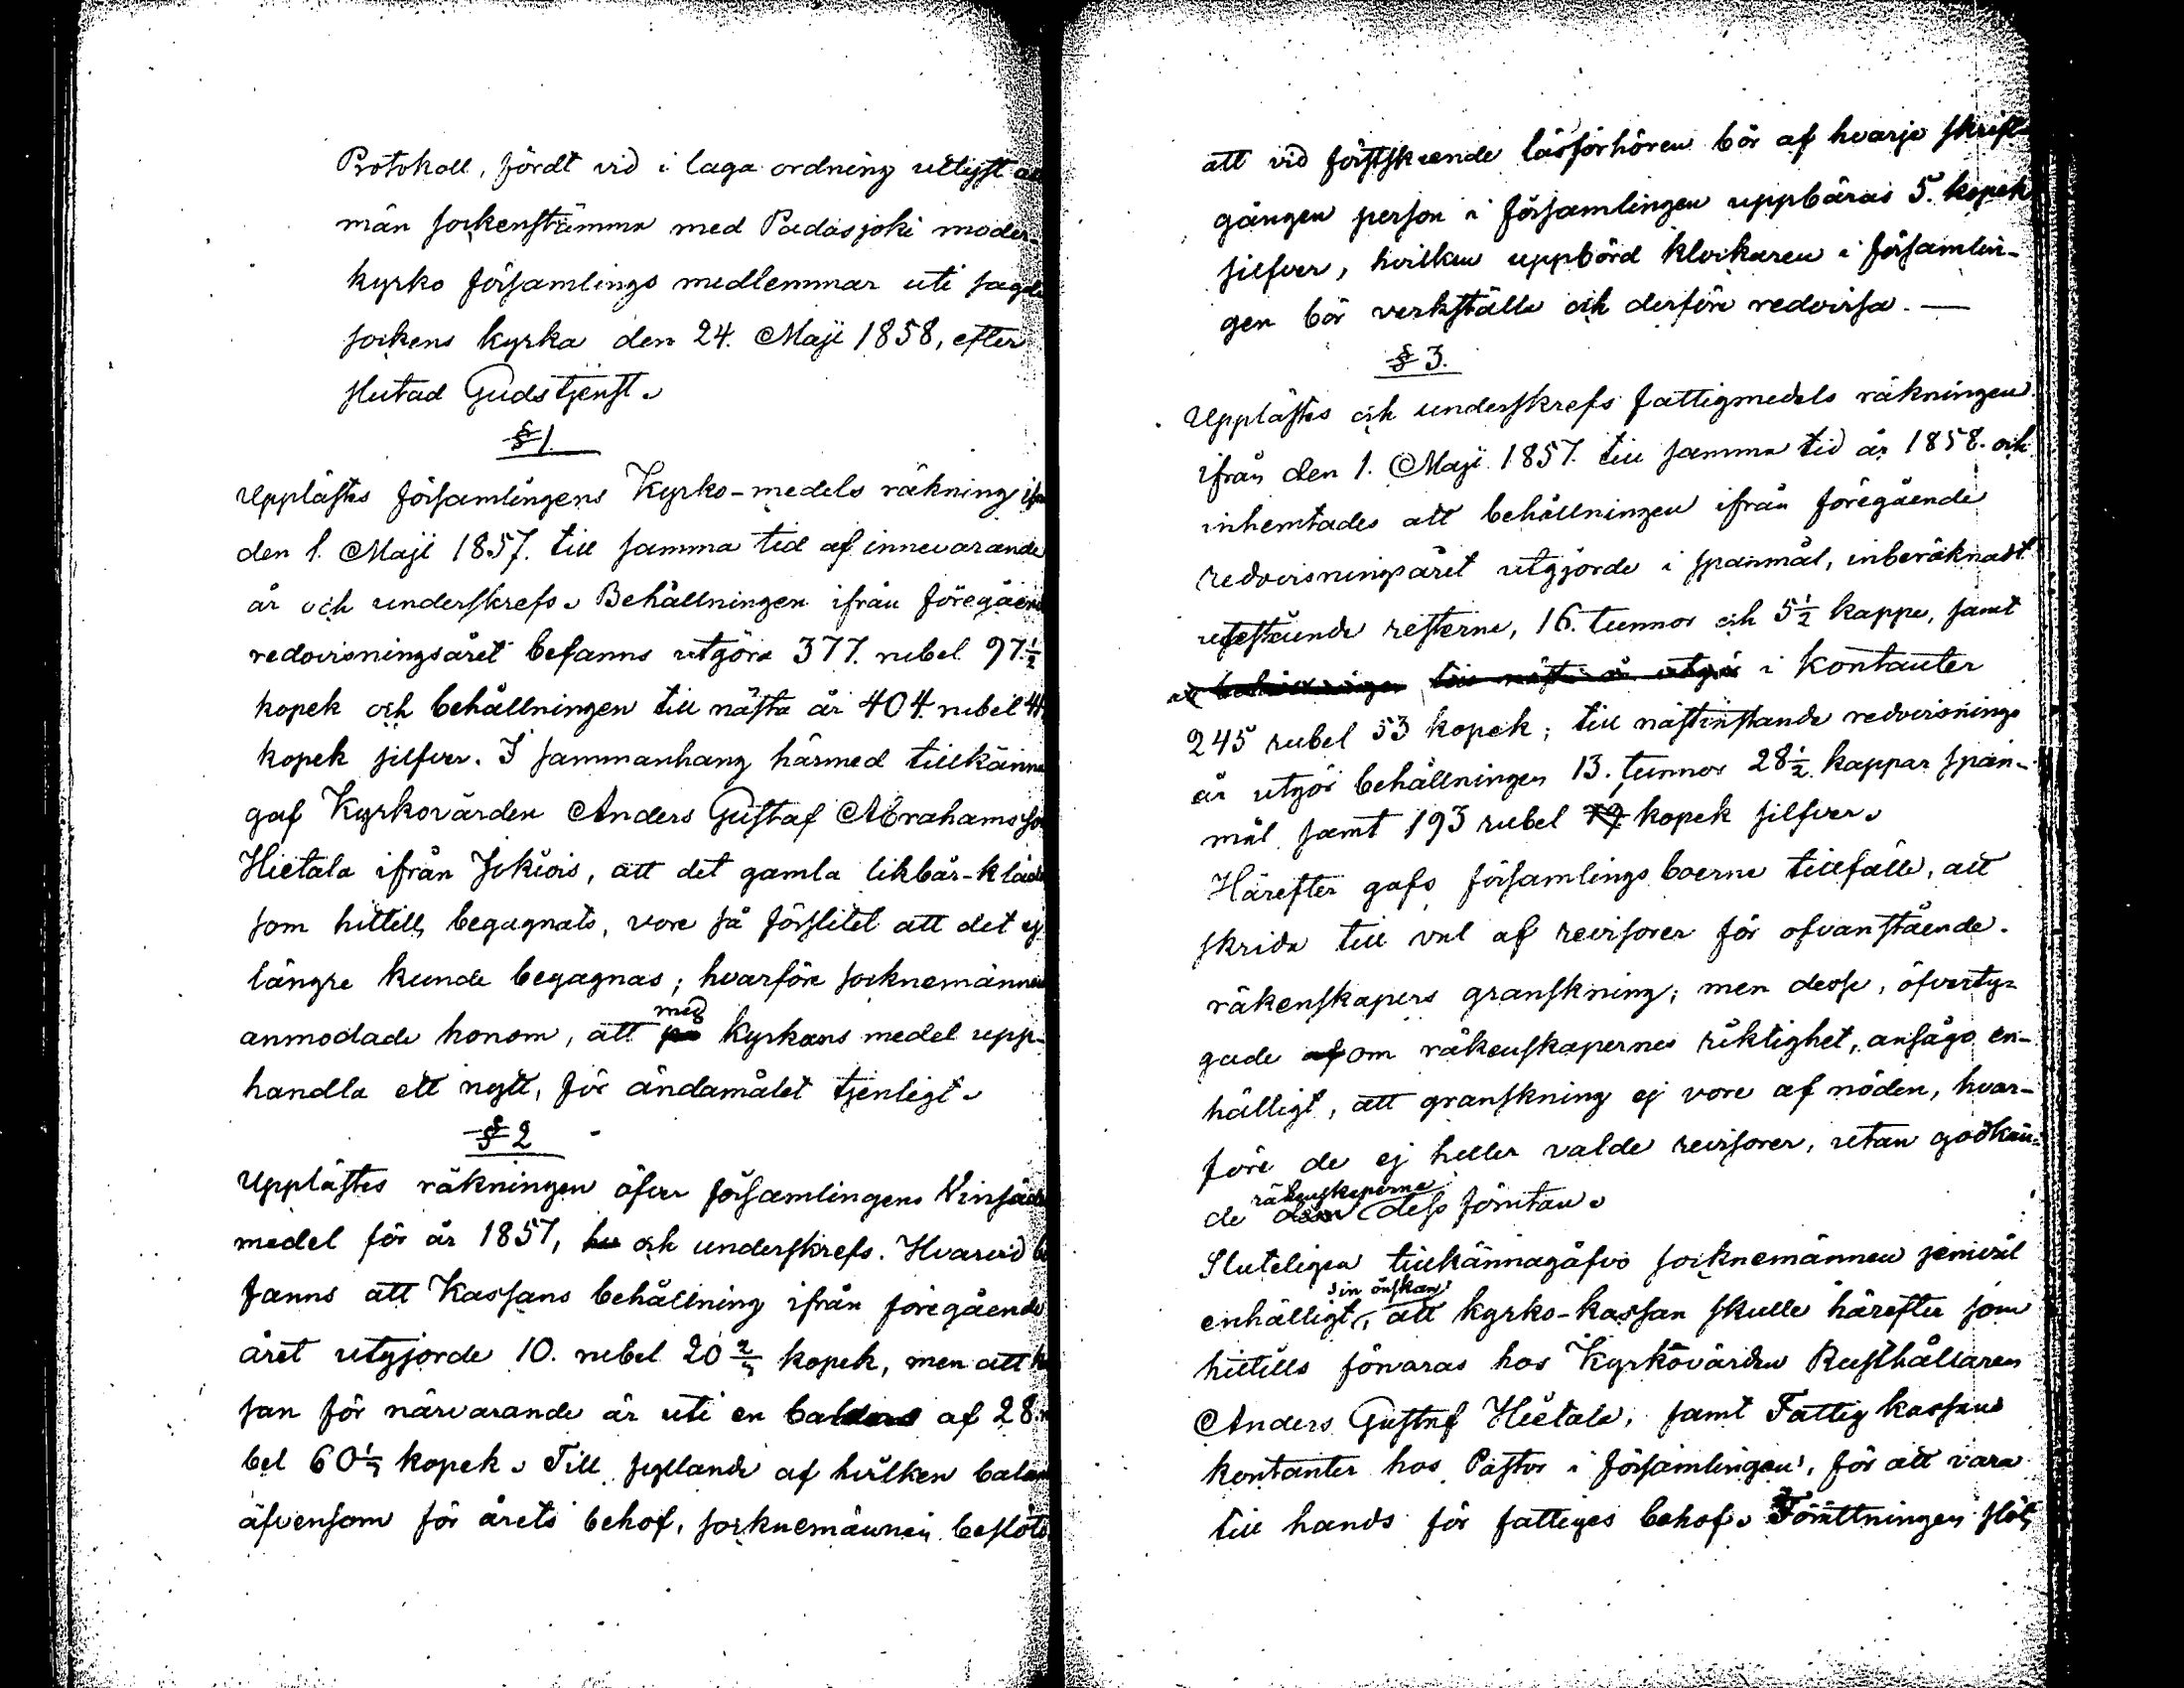 Protokoll, fördt vid i laga ordning utlyst all
män sockenstämma med Padasjoki moder-
kyrko församlings medlemmar uti sagde
sockens kyrka den 24. Maji 1858, efter
slutad Gudstjenst.
§ 1.
Upplästes församlingens Kyrko-medels räkning ifrån
den 1. Maji 1857. till samma tid af innevarande
år och underskrefs. Behållningen ifrån föregående
redovisningsåret befanns utgöra 377. rubel 97 1/2
kopek och behållningen till nästa år 404. rubel 44
kopek silfver. I sammanhang härmed tillkänna
gaf Kyrkovärden Anders Gustaf Abrahamsson
Hietala ifrån Jokiois, att det gamla likbår-kläde
som hittills begagnats, vore så förslitet att det ej
längre kunde begagnas; hvarföre socknemännen
anmodade honom, att med Kyrkans medel upp-
handla ett nytt, för ändamålet tjenligt.
§ 2
Upplästes räkningen öfver församlingens Vinsäds
medel för år 1857, och underskrefs. Hvarvid be
fanns att Kassans behållning ifrån föregående
året utgjorde 10. rubel 20 2/7 kopek, men att kas
san för närvarande är uti en balans af 28. ru
bel 60 1/7 kopek. Till fyllande af hvilken balans
äfvensom för årets behof, socknemännen beslöto,
att vid förstskeende läsförhören bör af hvarje skrift-
gången person i församlingen uppbäras 5. kopek
silfver, hvilken uppbörd klockaren i församlin-
gen bör verkställa och derföre redovisa. —
§ 3.
Upplästes och underskrefs fattigmedels räkningen
ifrån den 1. Maji 1857. till samma tid år 1858. och
inhemtades att behållningen ifrån föregående
redovisningsåret utgjorde i spanmål, inberäknadt
utestående resterne, 16. tunnor och 5 1/2 kappe, samt
i kontanter
245 rubel 53 kopek; till nästinstande redovisnings
år utgör behållningen 13. tunnor 28 1/2 kappar span-
mål samt 193 rubel 19 kopek silfver.
Härefter gafs församlings boerne tillfälle, att
skrida till val af revisorer för ofvanstående
räkenskapers granskning; men desse, öfverty-
gade om räkenskapernes riktighet, ansågo en-
hälligt, att granskning ej vore af nöden, hvar-
före de ej heller valde revisorer, utan godkän-
de räkenskaperne dess förutan.
Sluteligen tillkännagåfvo socknemännen jemväl
enhälligt, sin önskan att kyrko-kassan skulle härefter som
hittills förvaras hos Kyrkovärden Rusthållaren
Anders Gustaf Hietala, samt Fattig kassans
kontanter hos Pastor i församlingen, för att vara
till hands för fattiges behof. Förrättningen slöts